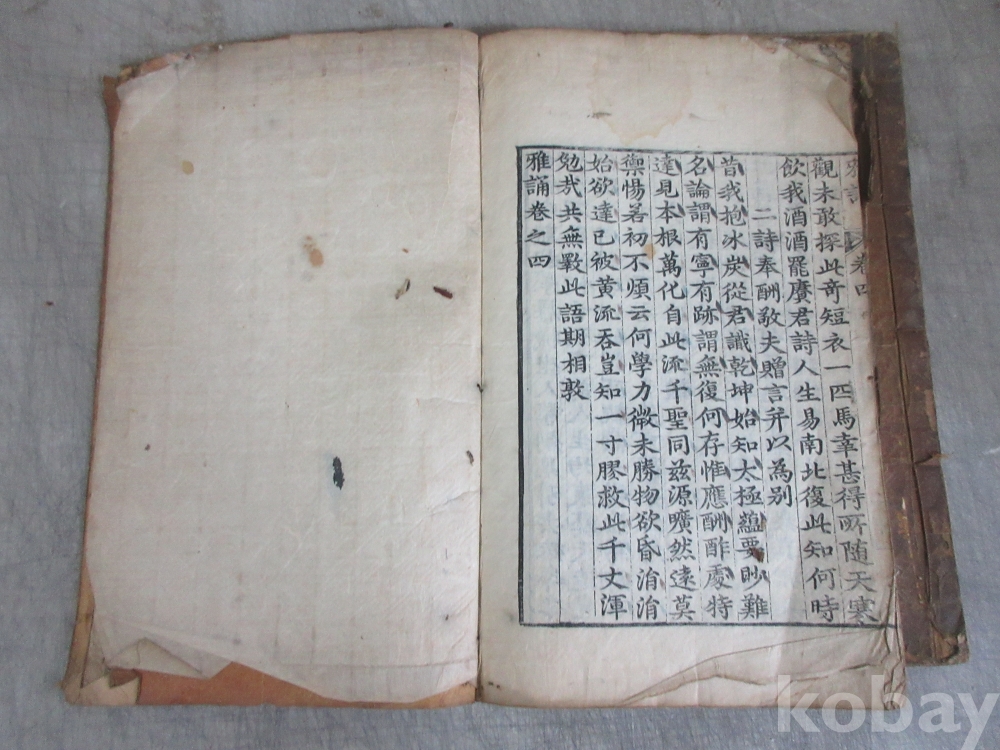 雅誦 卷四
觀未敢探此奇短衣一匹馬幸甚得所随天寒
飲我酒酒罷賡君詩人生易南北復此知何時
二詩奉酬敬夫贈言并以為别
昔我抱冰炭從君識乾坤始知太極蘊要眇難
名論謂有寧有跡謂無復何存惟應酬酢處特
達見本根萬化自此流千聖同兹源曠然遠莫
禦惕若初不煩云何學力微未勝物欲昏涓涓
始欲達已被黄流吞豈知一寸膠救此千丈渾
勉哉共無斁此語期相敦
雅誦卷之四
kobay